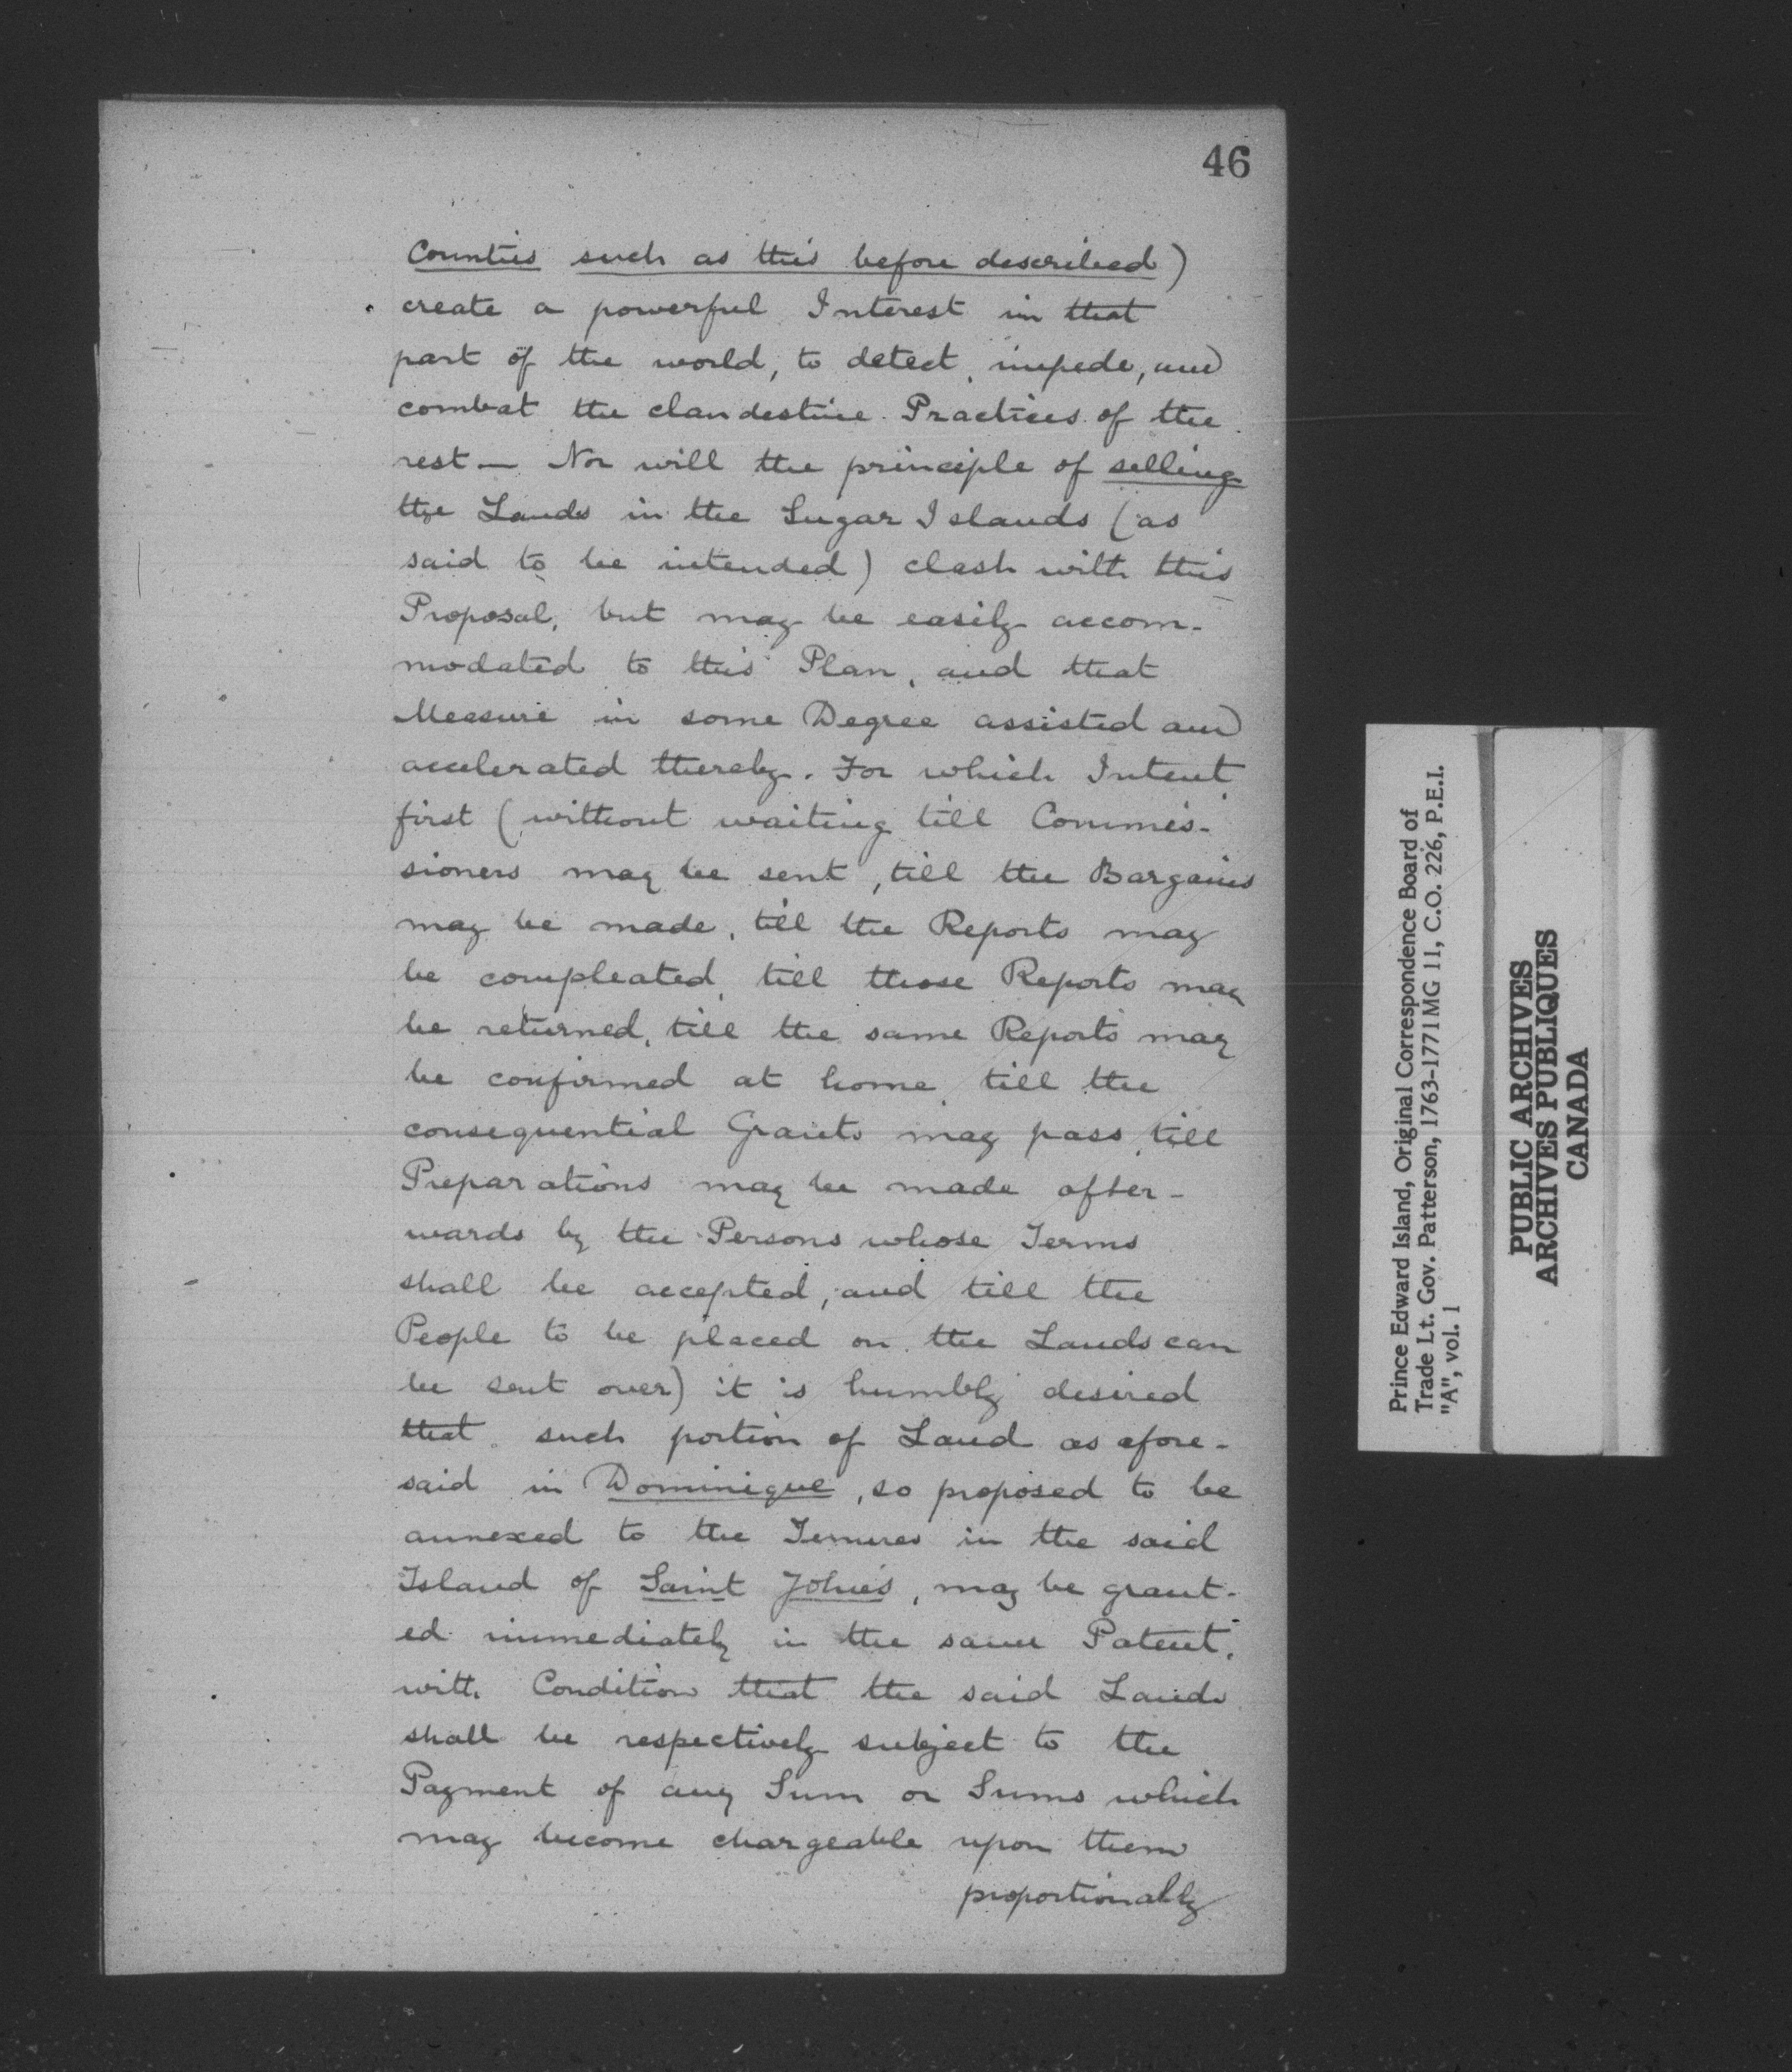 46
Counties such as this before described)
create a powerful Interest in that
part of the world, to detect, impede, and
combat the clandestine Practices of the
rest — Nor will the principle of selling
the Lands in the Sugar Islands (as
said to be intended) clash with this
Proposal, but may be easily accom-
modated to this Plan, and that
Measure in some Degree assisted and
accelerated thereby. For which Intent
first (without waiting till Commis-
sioners may be sent, till the Bargains
may be made, till the Reports may
be compleated, till those Reports may
be returned, till the same Reports may
be confirmed at home, till the
consequential Grants may pass, till
Preparations may be made after-
wards by the Persons whose Terms
shall be accepted, and till the
People to be placed on the Lands can
be sent over) it is humbly desired
that such portion of Land as afore-
said in Dominique, so proposed to be
annexed to the Tenures in the said
Island of Saint John's, may be grant-
ed immediately in the same Patent,
with Condition that the said Lands
shall be respectively subject to the
Payment of any Sum or Sums which
may become chargeable upon them
proportionably
Prince Edward Island, Original Correspondence Board of
Trade Lt. Gov. Patterson, 1763-1771 MG 11, C.O. 226, P.E.I.
"A", vol. 1
PUBLIC ARCHIVES
ARCHIVES PUBLIQUES
CANADA